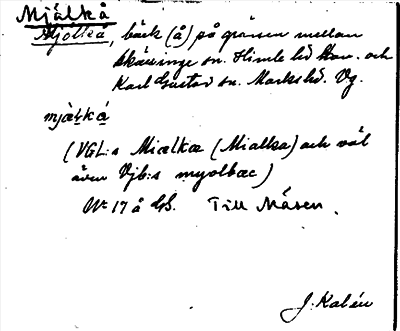 Mjälkå
Mjölkå, bäck (å) på gränsen mellan
Skällinge sn. Himle hd Hall. och
Karl Gustav sn. Marks hd. Vg.
mjàlká
(VGL:s Miælkæ (Mialka) och väl
även Vjb:s myolbæc)
Nr 17 å GS. Till Måsen.
J. Kalén